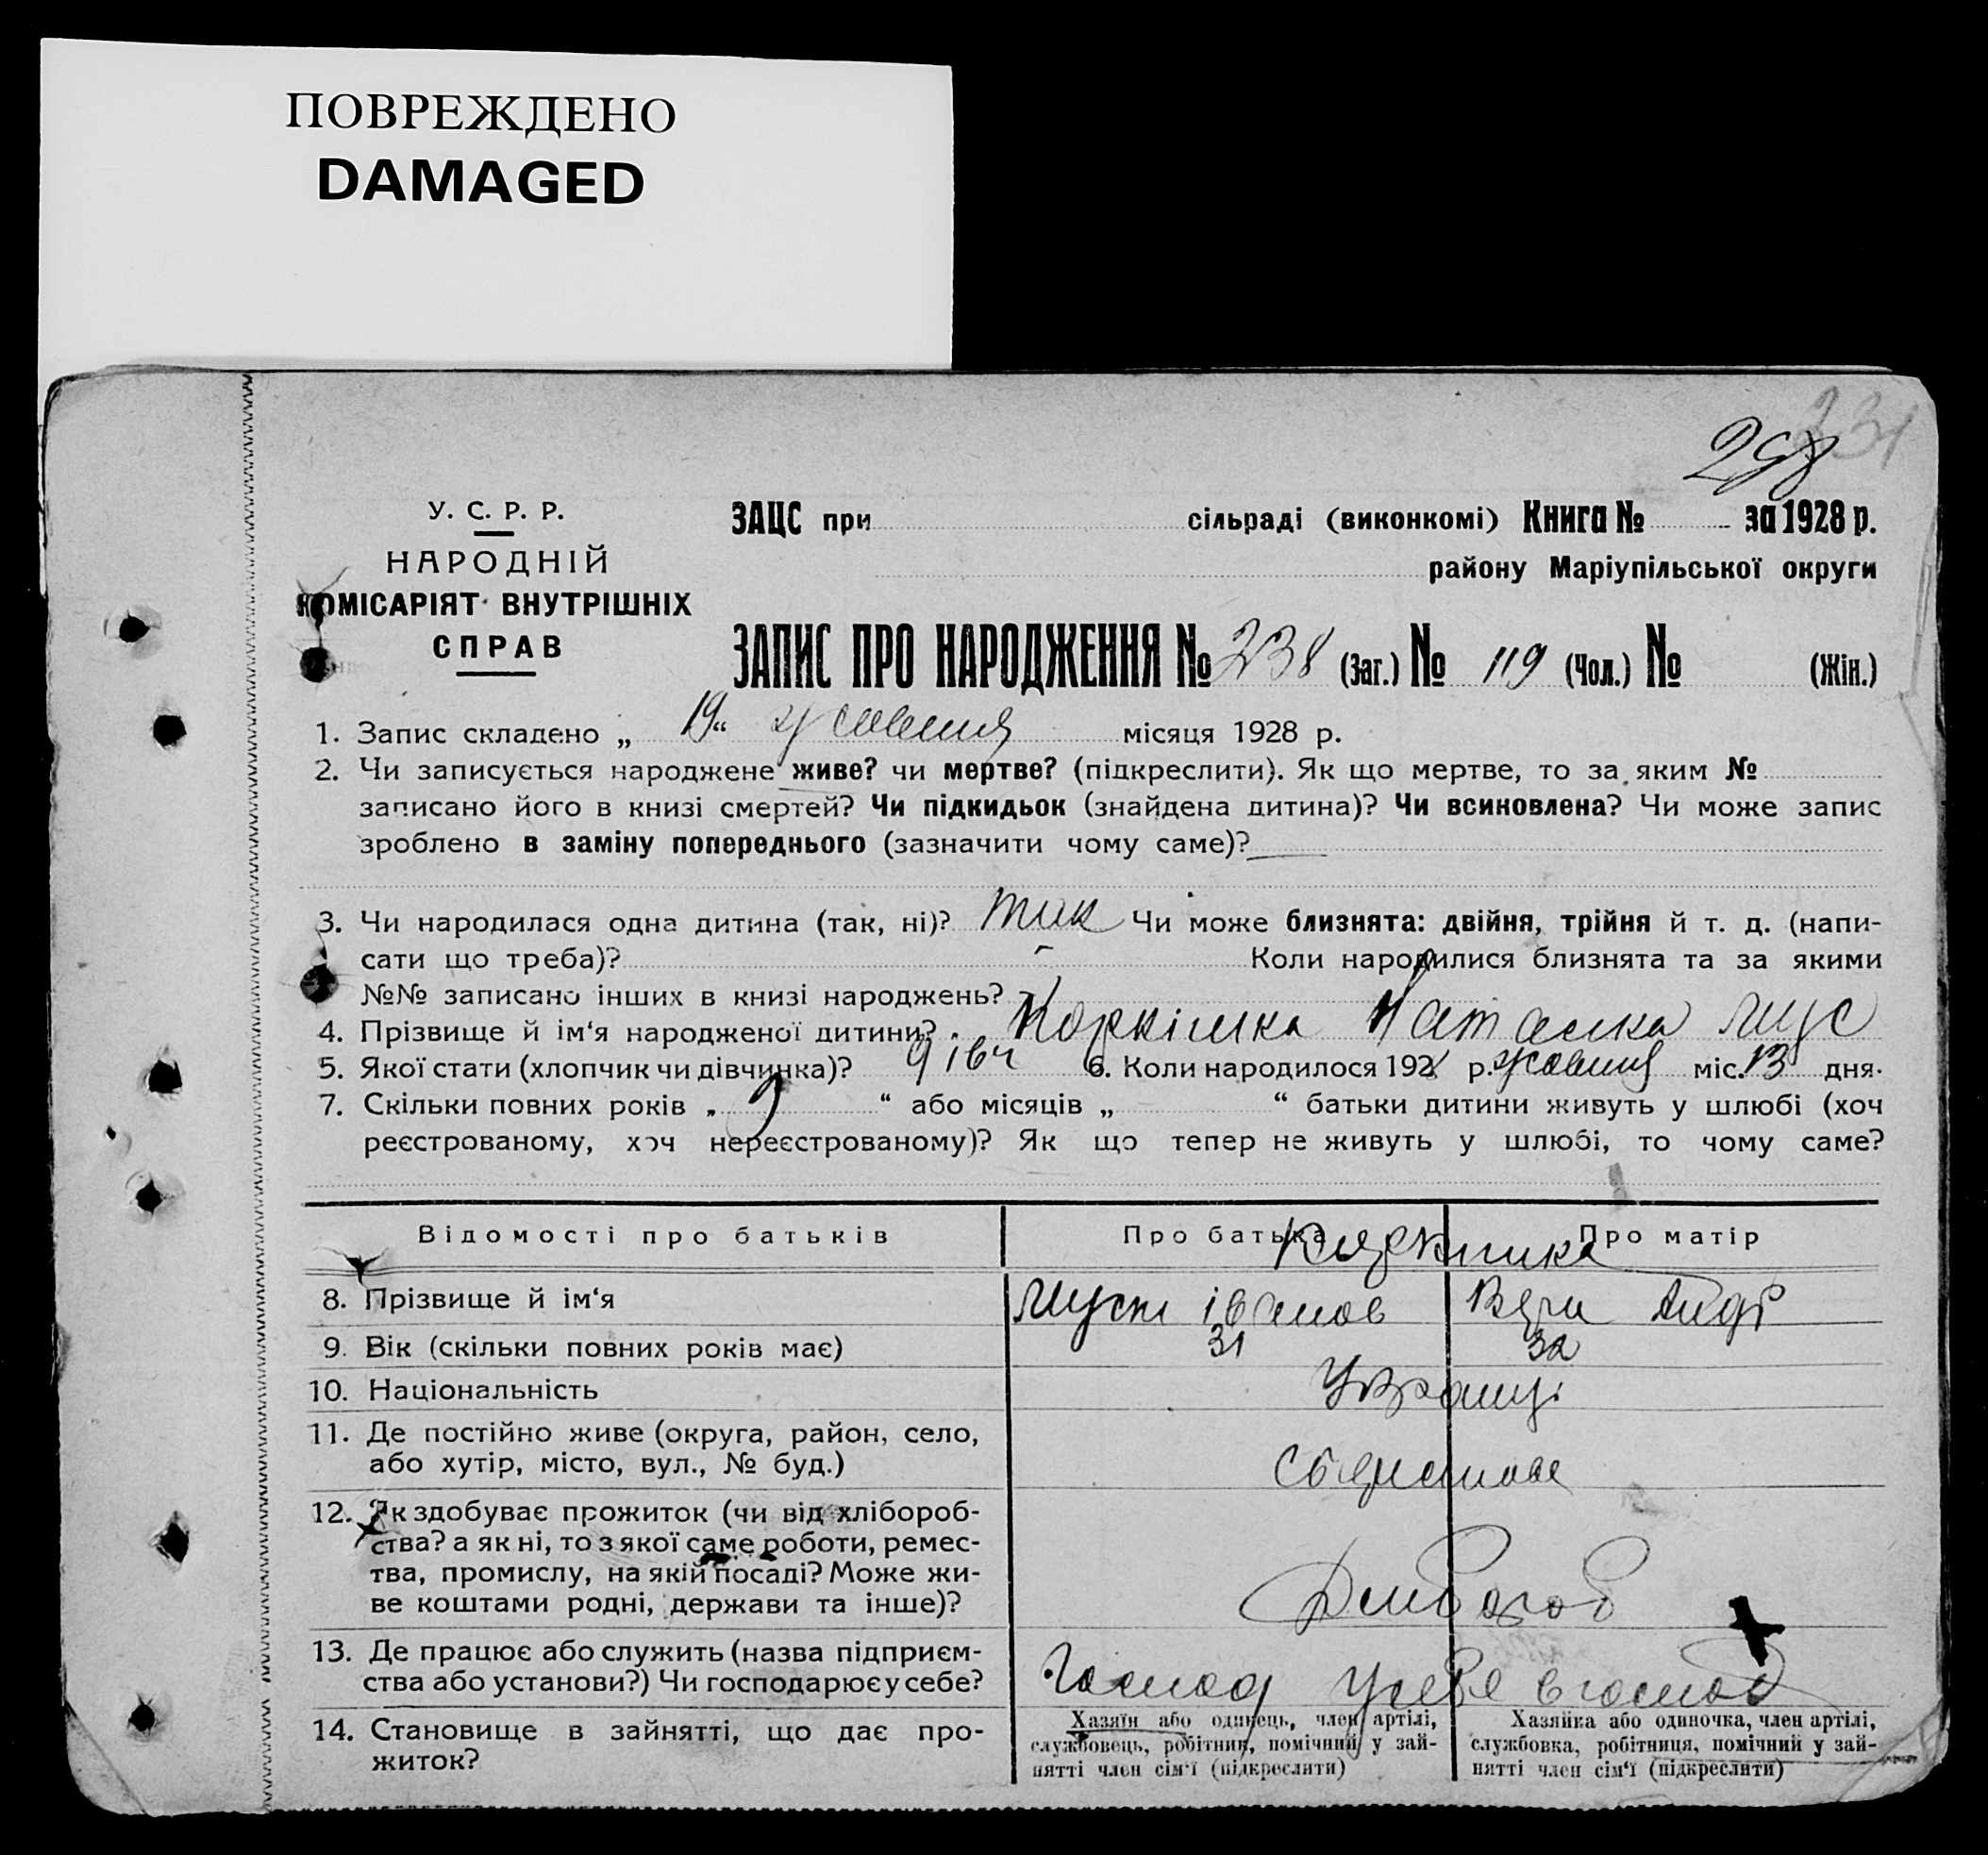 ПОВРЕЖДЕНО
DAMAGED
231
298
У. С. Р. Р.
НАРОДНІЙ
КОМІСАРІЯТ ВНУТРІШНІХ
СПРАВ
ЗАЦС при сільраді (виконкомі) Книга № за 1928 р.
району Маріупільської округи
ЗАПИС ПРО НАРОДЖЕННЯ № 238 (Заг.) № 119 (Чол.) № (Жін.)
1. Запис складено „ 19 “ жовтня місяця 1928 р.
2. Чи записується народжене живе? чи мертве? (підкреслити). Як що мертве, то за яким №
записано його в книзі смертей? Чи підкидьок (знайдена дитина)? Чи всиновлена? Чи може запис
зроблено в заміну попереднього (зазначити чому саме)?
3. Чи народилася одна дитина (так, ні)? так Чи може близнята: двійня, трійня й т. д. (напи-
сати що треба)? - Коли народилися близнята та за якими
№№ записано інших в книзі народжень?
4. Прізвище й ім‘я народженої дитини?
5. Якої стати (хлопчик чи дівчинка)? дівч 6. Коли народилося 1928 р. жовтня міс. 13 дня.
7. Скільки повних років „ 9 “ або місяців „ “ батьки дитини живуть у шлюбі (хоч
реєстрованому, хоч нереєстрованому)? Як що тепер не живуть у шлюбі, то чому саме?
Відомості про батьків Про батька Про матір
8. Прізвище й ім‘я Віри Андр
9. Вік (скільки повних років має) 31 32
10. Національність Україці
11. Де постійно живе (округа, район, село,
або хутір, місто, вул., № буд.)
12. Як здобуває прожиток (чи від хлібороб-
ства? а як ні, то з якої саме роботи, ремес-
тва, промислу, на якій посаді? Може жи-
ве коштами родні, держави та інше)?
Хлібороб
13. Де працює або служить (назва підприєм-
ства або установи?) Чи господарює у себе?
Господ у себе в господ
14. Становище в зайнятті, що дає про-
житок?
Хазяїн або одинець, член артілі,
службовець, робітник, помічний у зай-
нятті член сім‘ї (підкреслити)
Хазяйка або одиночка, член артілі,
службовка, робітниця, помічний у зай-
нятті член сім‘ї (підкреслити)